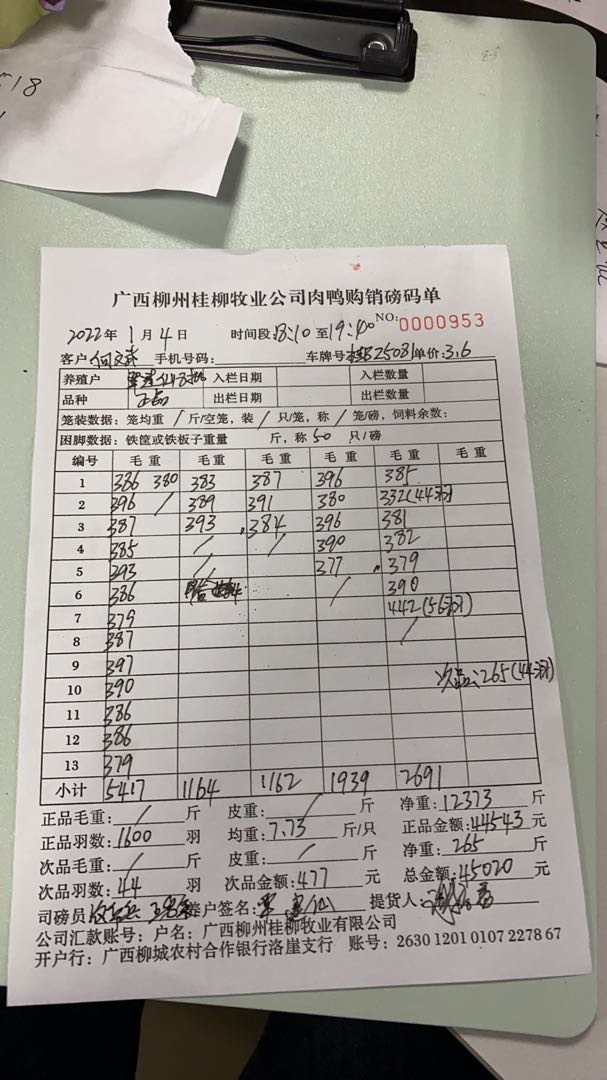 18
广西柳州桂柳牧业公司肉鸭购销磅码单
2022年 1月 4日 时间段:18:10至19:40 NO:0000953
客户:何文武 手机号码: 车牌号 桂B25081 单价:3.6
养殖户 入栏日期 入栏数量
品种 正品 出栏日期 出栏数量
笼装数据:笼均重 / 斤/空笼,装 / 只/笼,称 / 笼/磅,饲料余数:
困脚数据:铁筐或铁板子重量 斤,称 50 只/磅
编号 毛重 毛重 毛重 毛重 毛重 毛重
1 386 380 383 387 396 385
2 396 / 389 391 380 332(44羽)
3 387 393 384 396 381
4 385 / / 390 382
5 393 / 377 379
6 386 / 390
7 379 442(56羽)
8 387 /
9 397
10 390 次品:265(44羽)
11 386
12 386
13 379
小计 5417 1164 1162 1939 2691
正品毛重: / 斤 皮重: / 斤 净重:12373 斤
正品羽数:1600 羽 均重:7.73 斤/只 正品金额:44543 元
次品毛重: / 斤 皮重: / 斤 净重:265 斤
次品羽数:44 羽 次品金额:477 元 总金额:45020 元
司磅员: 养户签名: 提货人:
公司汇款账号:户名:广西柳州桂柳牧业有限公司
开户行:广西柳城农村合作银行洛崖支行 账号:2630 1201 0107 2278 67